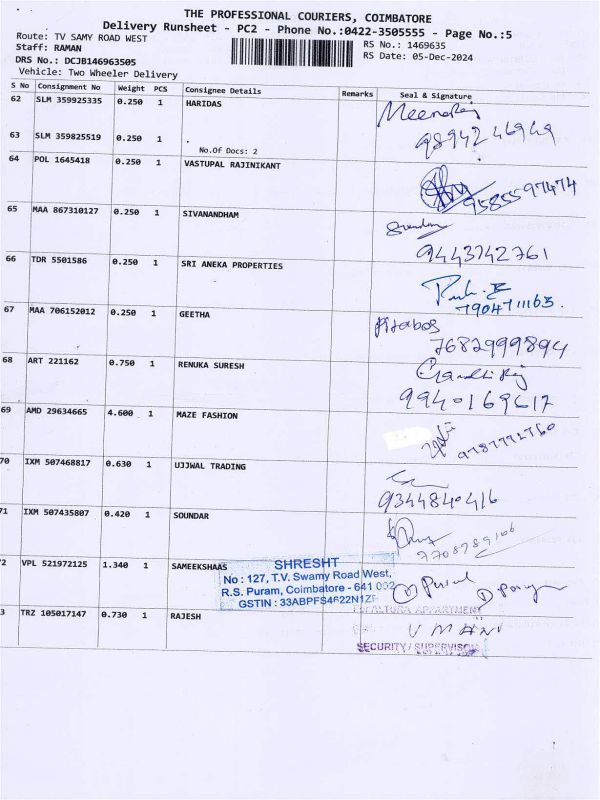 THE PROFESSIONAL COURIERS, COIMBATORE
Delivery Runsheet - PC2 - Phone No.:0422-3505555 - Page No.:5
Route: TV SAMY ROAD WEST
RS No.: 1469635
Staff: RAMAN
RS Date: 05-Dec-2024
DRS No.: DCJB146963505
Vehicle: Two Wheeler Delivery
S No Consignment No Weight PCS Consignee Details Remarks Seal & Signature
62 SLM 359925335 0.250 1 HARIDAS
63 SLM 359825519 0.250 1 .
No.Of Docs: 2
9894246949
64 POL 1645418 0.250 1 VASTUPAL RAJINIKANT
9585597474
65 MAA 867310127 0.250 1 SIVANANDHAM
9443742761
66 TDR 5501586 0.250 1 SRI ANEKA PROPERTIES
7904711163.
67 MAA 706152012 0.250 1 GEETHA
7682999894
68 ART 221162 0.750 1 RENUKA SURESH
9940169617
69 AMD 29634665 4.600 1 MAZE FASHION
9787772760
70 IXM 507468817 0.630 1 UJJWAL TRADING
9344840416
71 IXM 507435807 0.420 1 SOUNDAR
72 VPL 521972125 1.340 1 SAMEEKSHAAS
SHRESHT
No : 127, T.V. Swamy Road West,
R.S. Puram, Coimbatore - 641 002
GSTIN : 33ABPFS4622N1ZF
APPARTMENT
73 TRZ 105017147 0.730 1 RAJESH
SECURITY / SUPERVISOR